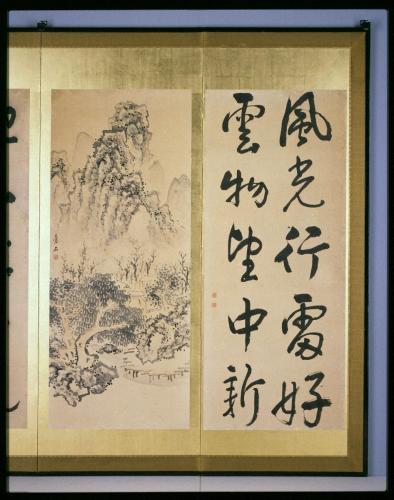 風光行處好
雲物望中新